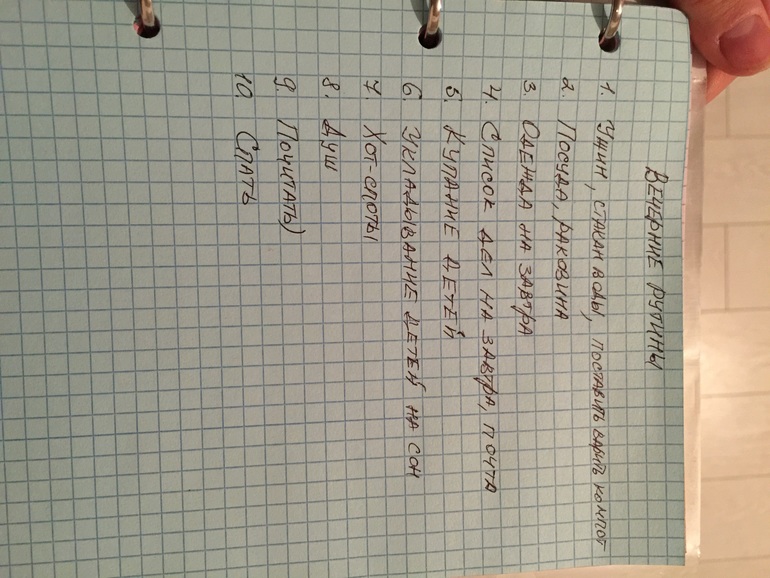 Вечерние рутины
1. Ужин, стакан воды, поставить варить компот
2. Посуда, раковина
3. Одежда на завтра
4. Список дел на завтра, почта
5. Купание детей
6. Укладывание детей на сон
7. Хот-споты
8. Душ
9. Почитать)
10. Спать